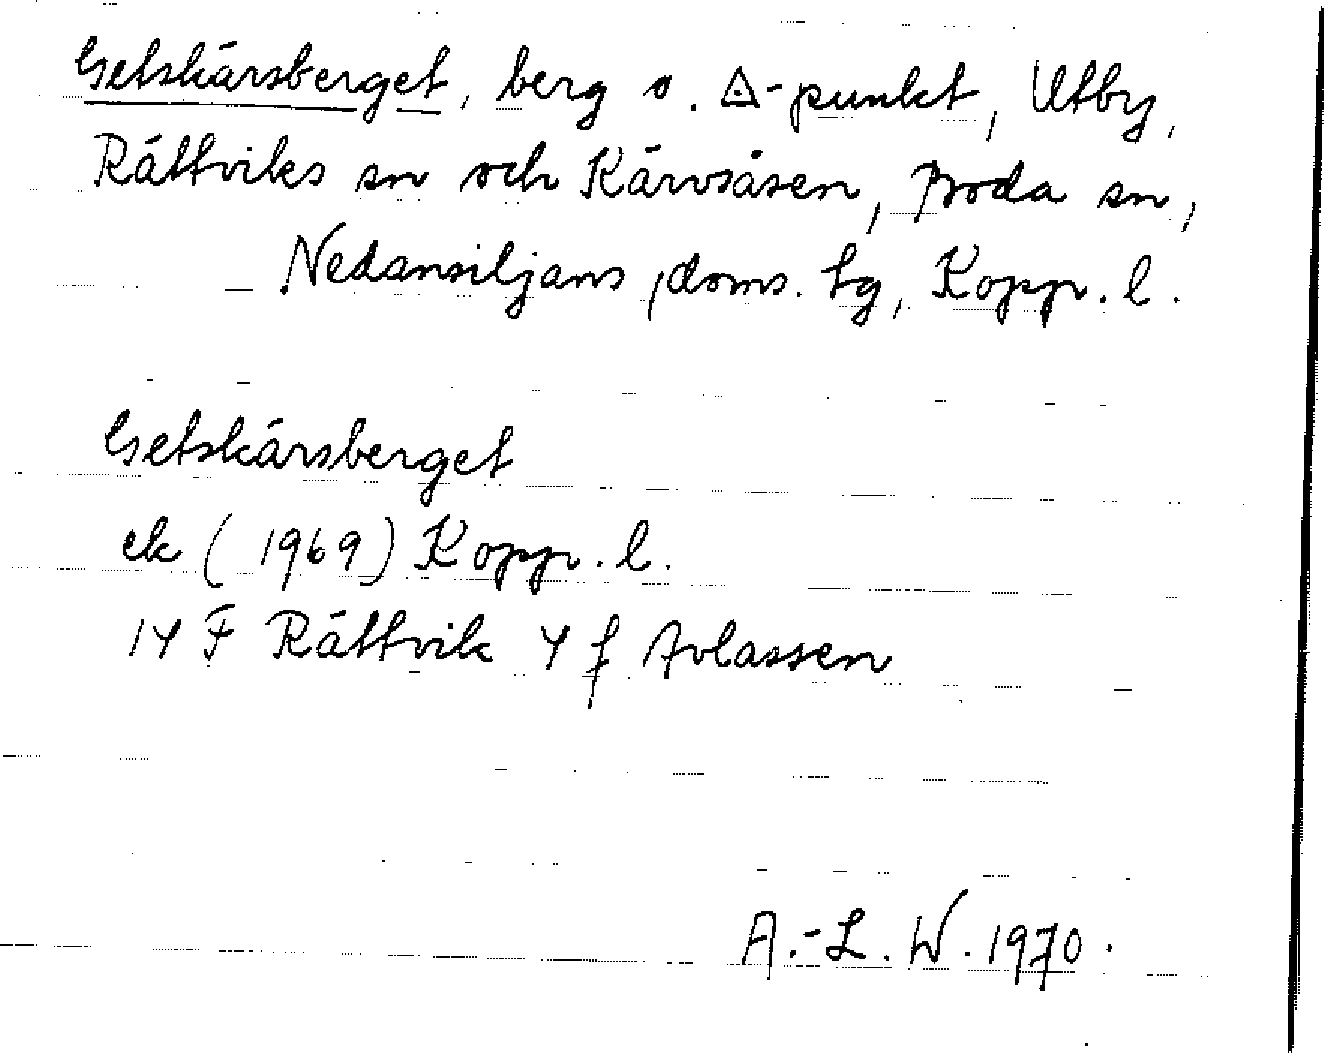 Getskärsberget, berg o. △-punkt, Utby,
Rättviks sn och Kärvsåsen, Boda sn,
Nedansiljans doms. tg, Kopp. l.
Getskärsberget
ek (1969) Kopp. l.
14 F Rättvik 4 f Avlassen
A.-L. W. 1970.